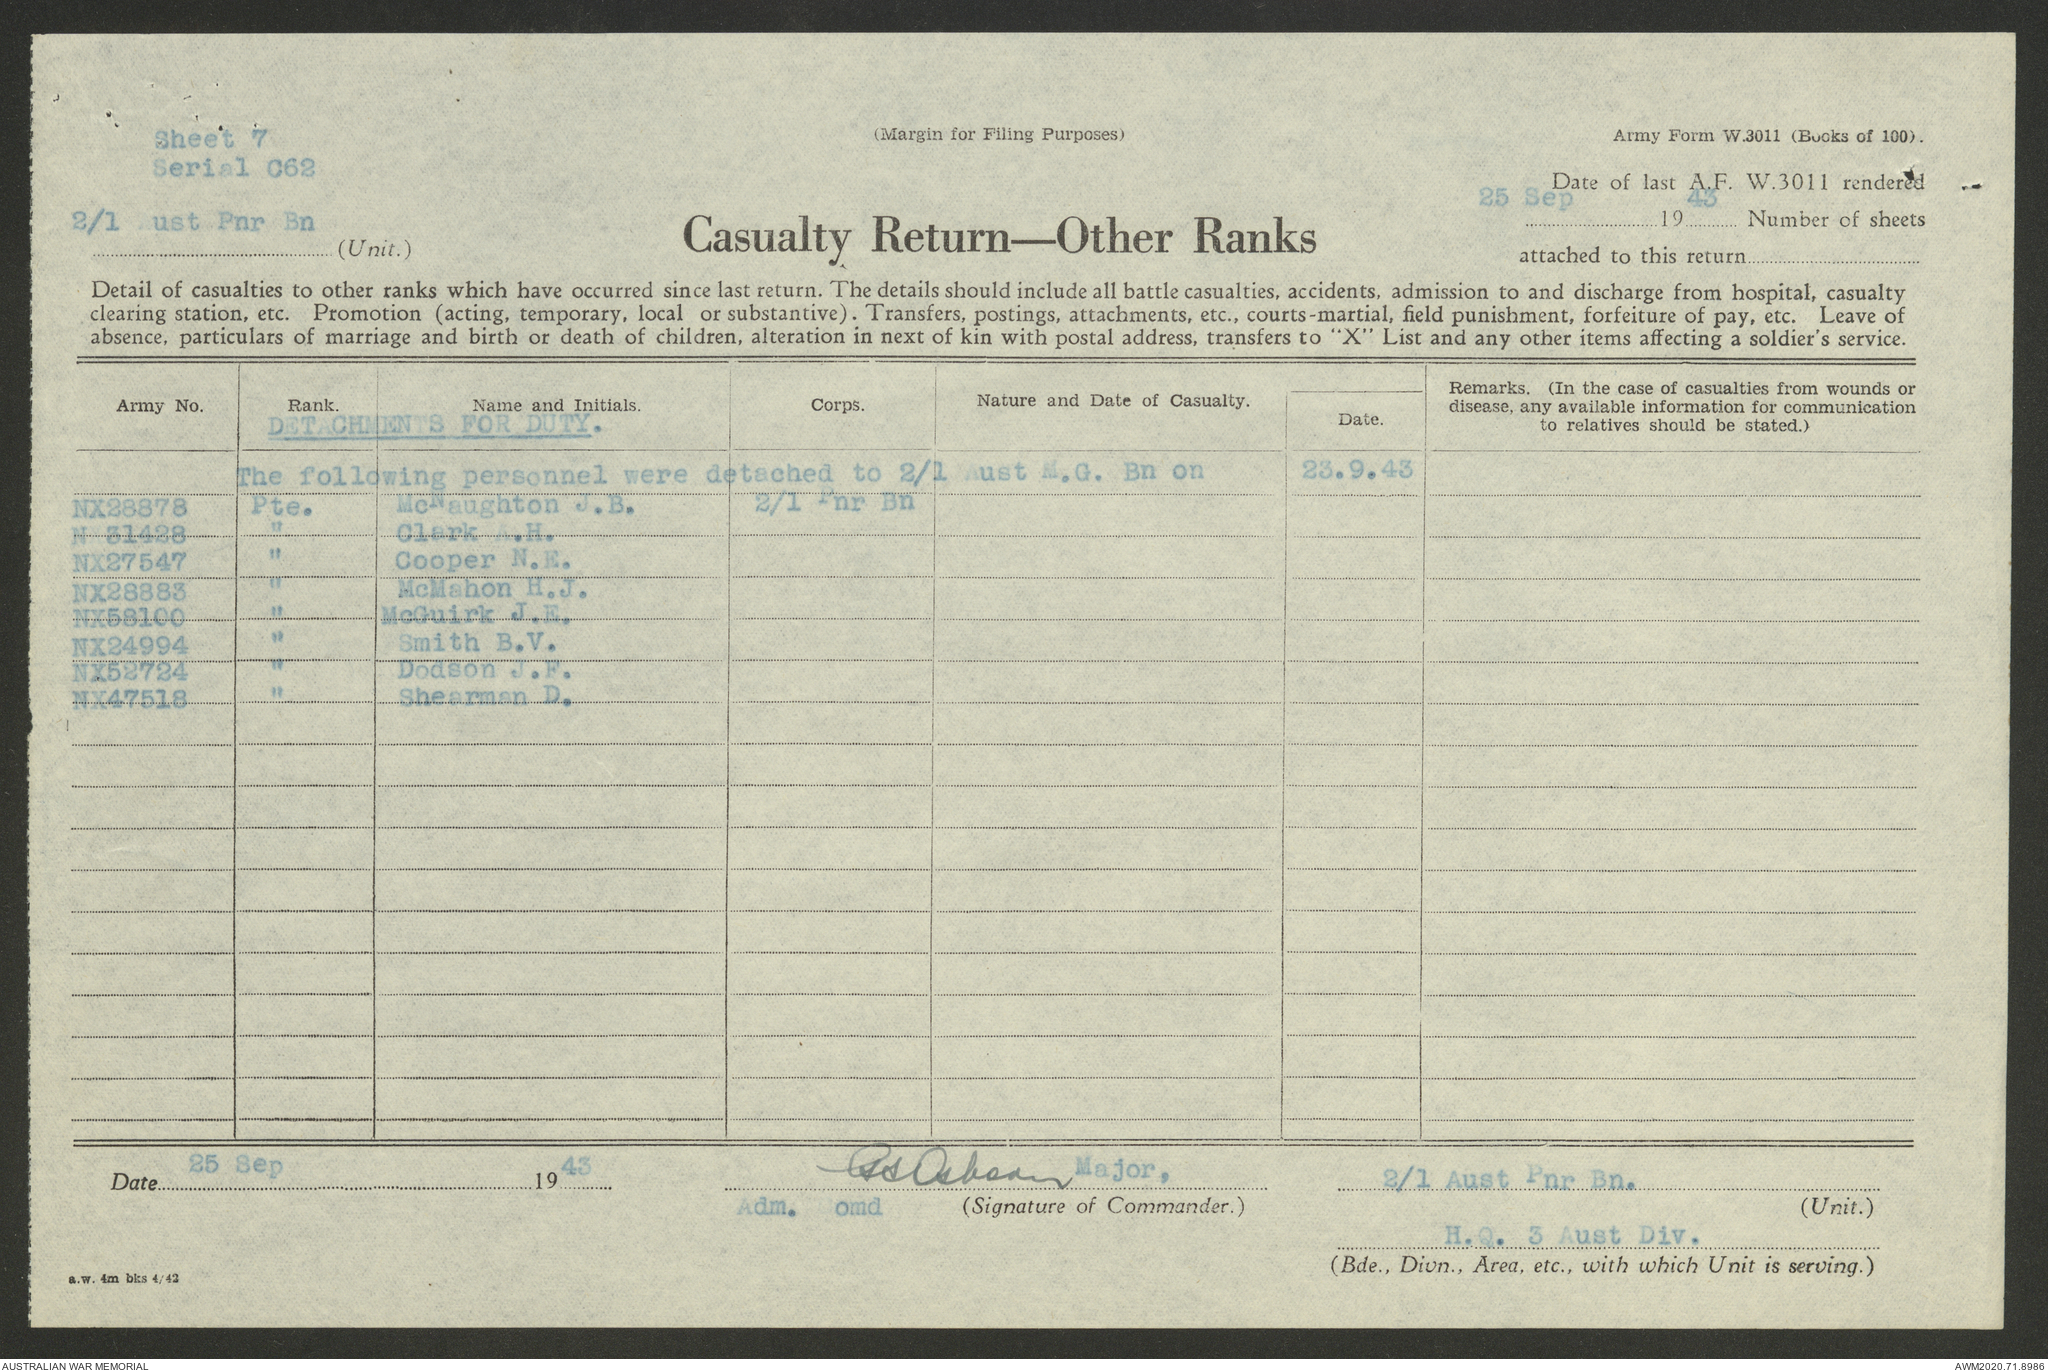 Sheet 7
Serial C62
(Margin for Filing Purposes)
Army Form W.3011 (Books of 100).
Date of last A.F. W.3011 rendered
25 Sep 1943 Number of sheets
attached to this return
2/1 ust Pnr Bn
(Unit.)
Casualty Return—Other Ranks
Detail of casualties to other ranks which have occurred since last return. The details should include all battle casualties, accidents, admission to and discharge from hospital, casualty
clearing station, etc. Promotion (acting, temporary, local or substantive). Transfers, postings, attachments, etc., courts-martial, field punishment, forfeiture of pay, etc. Leave of
absence, particulars of marriage and birth or death of children, alteration in next of kin with postal address, transfers to "X" List and any other items affecting a soldier's service.
Army No. Rank. Name and Initials. Corps. Nature and Date of Casualty. Date.
Remarks. (In the case of casualties from wounds or
disease, any available information for communication
to relatives should be stated.)
DETACHMENTS FOR DUTY.
The following personnel were detached to 2/1 Aust M.G. Bn on 23.9.43
NX28878 Pte. McNaughton J.B. 2/1 Pnr Bn
N 31428 " Clark A.H.
NX27547 " Cooper N.E.
NX28883 " McMahon H.J.
NX58100 " McGuirk J.E.
NX24994 " Smith B.V.
NX52724 " Dodson J.F.
NX47518 " Shearman D.
Date 25 Sep 1943
Major,
Adm. omd (Signature of Commander.)
2/1 Aust Pnr Bn.
(Unit.)
H.Q. 3 Aust Div.
(Bde., Divn., Area, etc., with which Unit is serving.)
a.w. 4m bks 4/42
AUSTRALIAN WAR MEMORIAL
AWM2020.71.8986